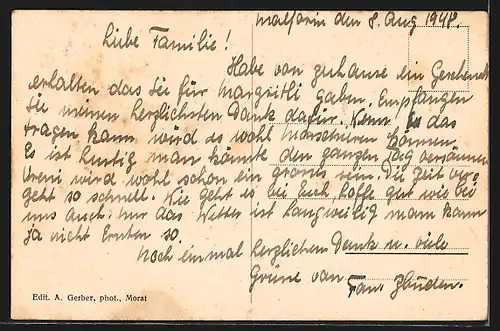 den 8. Aug 1948.
Liebe Familie!
Habe von zuhause ein Geschenk
erhalten das Sei für Margritli gaben. Empfangen
Sie meinen herzlichsten Dank dafür. Wenn Es das
tragen kann wird es wohl können.
Es ist lustig man könnte den ganzen Tag versäumen
Vreni wird wohl schon ein groses sein. Die Zeit ver-
geht so schnell. Wie geht es bei Euch, hoffe gut wie bei
uns auch; nur das Wetter ist langweilig mann kann
ja nicht Ernten so.
Noch einmal herzlichen Dank u. viele
Grüse von
Fam.
Edit. A. Gerber, phot., Morat